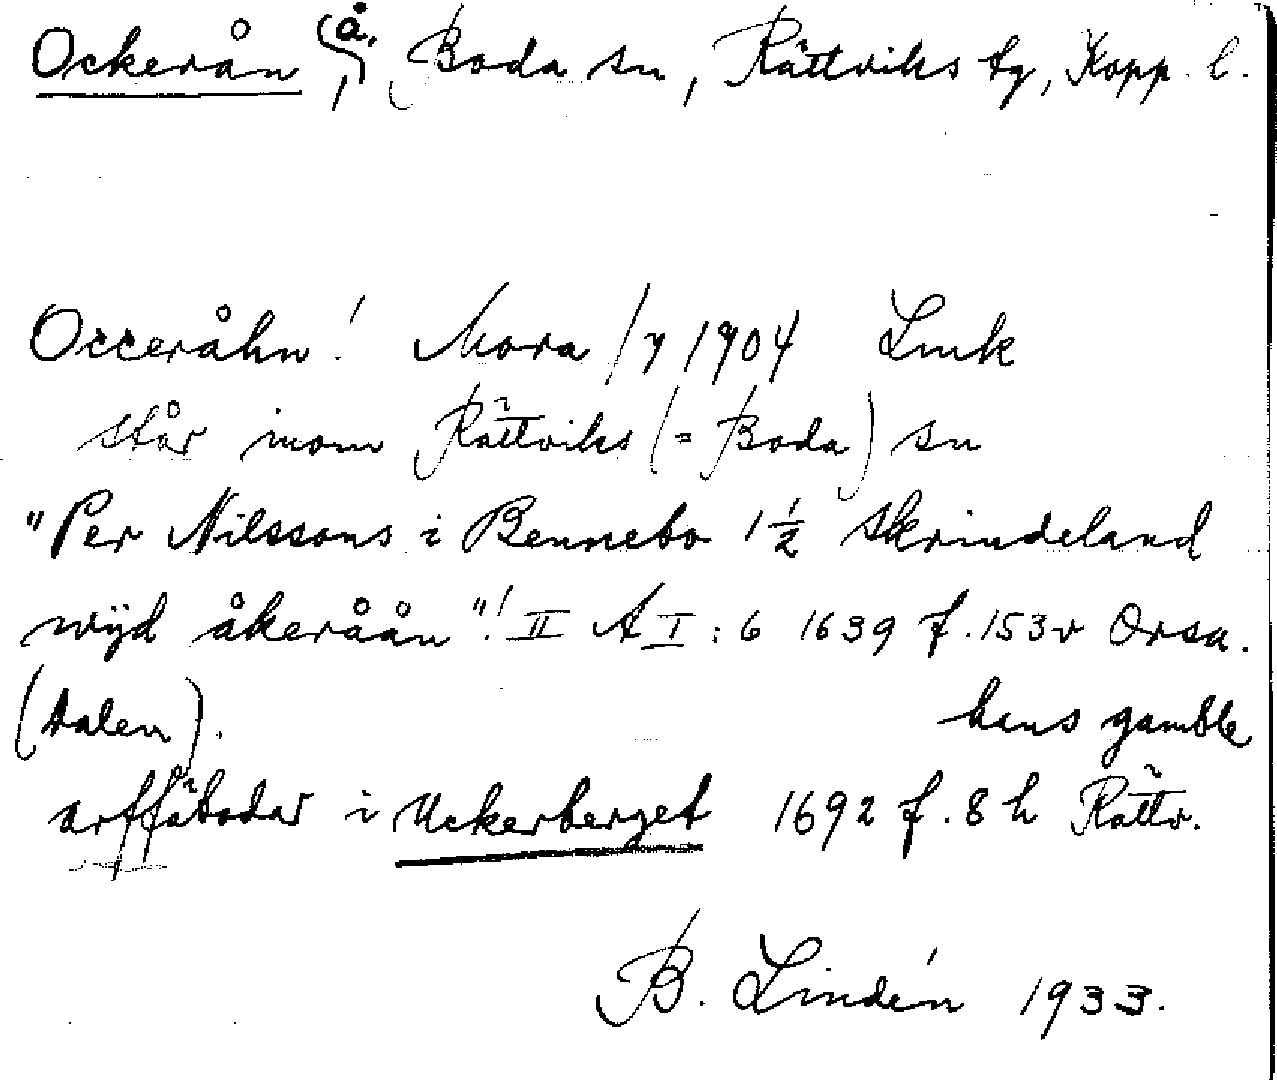 Ockerån, å, Boda sn, Rättviks tg, Kopp. l.
Occeråhn! Mora /7 1904 Link
står inom Rättviks (= Boda) sn
"Per Nilssons i Bennebo 1½ skrindeland
wÿd åkeråån"! II A I: 6 1639 f. 153v Orsa.
(Dalen). hans gamble
arffäbodar i Uckerberget 1692 f. 8 h Rättv.
B. Lindén 1933.